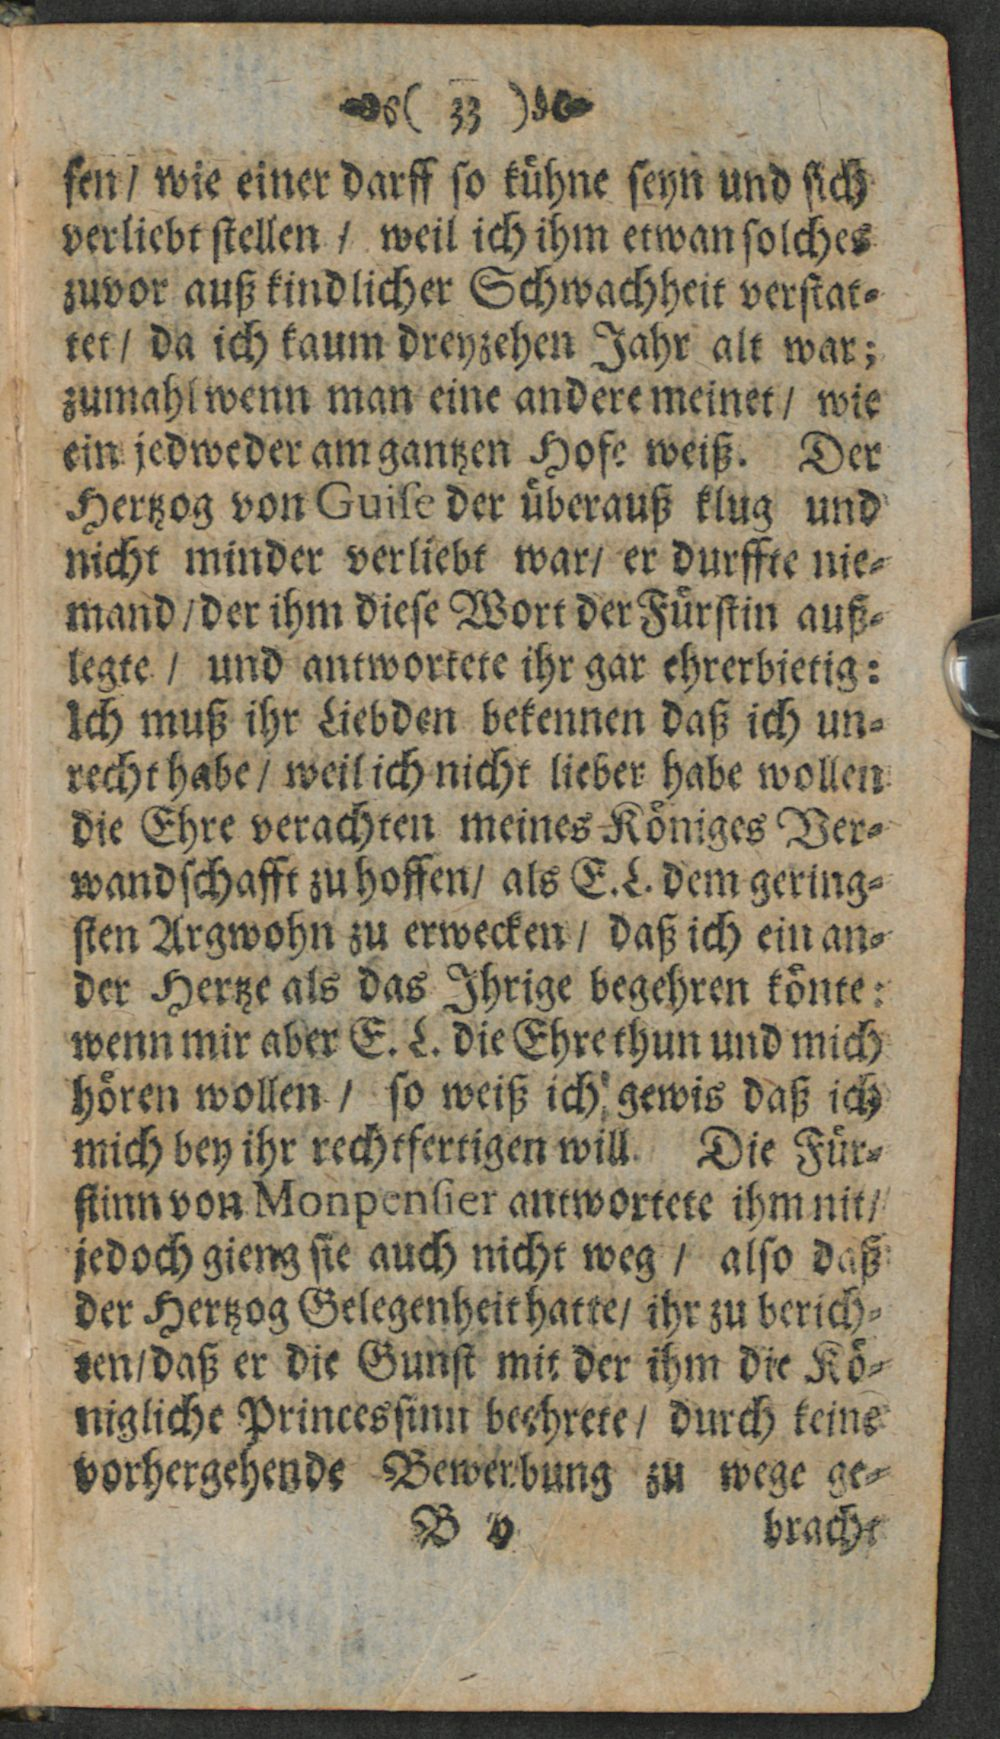 ( 33 )
sen / wie einer darff so kühne seyn und sich
verliebt stellen / weil ich ihm etwan solches
zuvor auß kindlicher Schwachheit verstat-
tet / da ich kaum dreyzehen Jahr alt war;
zumahl wenn man eine andere meinet / wie
ein jedweder am gantzen Hofe weiß. Der
Hertzog von Guise der überauß klug und
nicht minder verliebt war / er durffte nie-
mand / der ihm diese Wort der Fürstin auß-
legte / und antwortete ihr gar ehrerbietig:
Ich muß ihr Liebden bekennen daß ich un-
recht habe / weil ich nicht lieber habe wollen
die Ehre verachten meines Königes Ver-
wandschafft zu hoffen / als E. L. dem gering-
sten Argwohn zu erwecken / daß ich ein an-
der Hertze als das Ihrige begehren könte:
wenn mir aber E. L. die Ehre thun und mich
hören wollen / so weiß ich gewis daß ich
mich bey ihr rechtfertigen will. Die Für-
stinn von Monpensier antwortete ihm nit /
jedoch gieng sie auch nicht weg / also daß
der Hertzog Gelegenheit hatte / ihr zu berich-
ten / daß er die Gunst mit der ihm die Kö-
nigliche Princessinn beehrete / durch keine
vorhergehende Bewerbung zu wege ge-
B v bracht